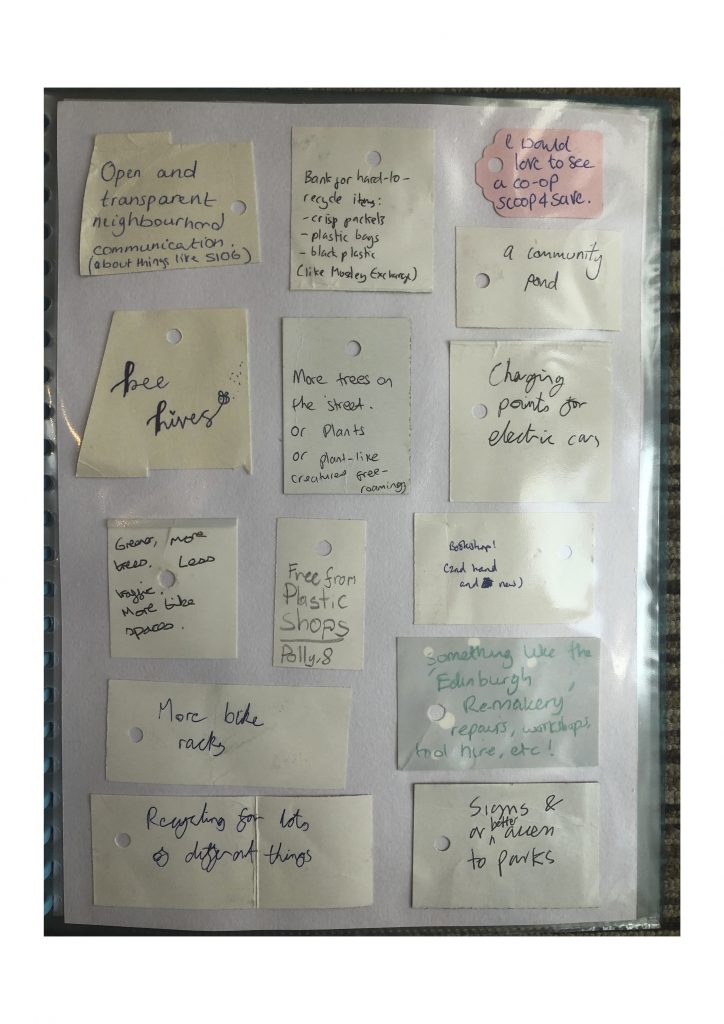 Open and
transparent
neighbourhood
communication.
(about things like S106)
Bank for hard-to-
recycle items:
- crisp packets
- plastic bags
- black plastic
(like Mossley Exchange)
I would
love to see
a co-op
scoop & save.
a community
pond
bee
hives
More trees on
the street.
Or Plants
Or plant-like
creatures free-
roaming
Charging
points for
electric cars
Greener, more
trees. Less
traffic.
More bike
spaces.
Free from
Plastic
Shops
Polly, 8
Bookshop!
(2nd hand
and new)
Something like the
'Edinburgh
Remakery'
repairs, workshops,
tool hire, etc!
More bike
racks
Recycling for lots
of different things
Signs &
or better access
to parks